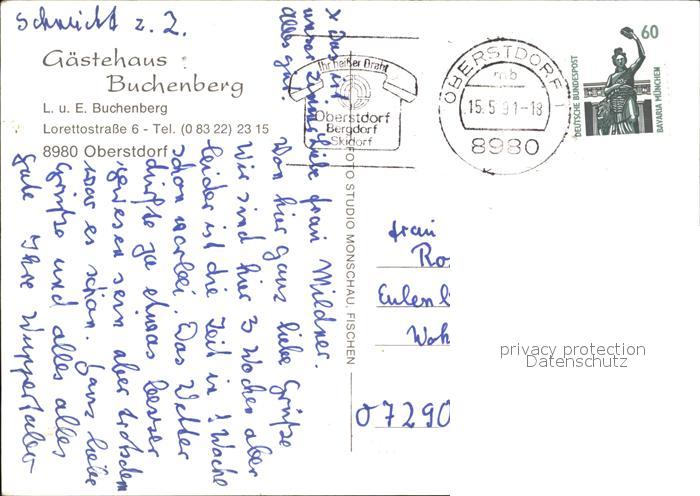 Schneicht z. Z.
Gästehaus
Buchenberg
L. u. E. Buchenberg
Lorettostraße 6 - Tel. (0 83 22) 23 15
8980 Oberstdorf
x Das ist
unser Zimmer
alles gut
Liebe Frau Mildner.
Von hier ganz liebe Grüße
Wir sind hier 3 Wochen aber
leider ist die Zeit in 1 Woche
schon vorbei. Das Wetter
dürfte ja etwas besser
gewesen sein aber trotzdem
war es schön. Ganz liebe
Grüße und alles alles
Gute Ihre Wuppertaler
FOTO STUDIO MONSCHAU, FISCHEN
Ihr heißer Draht
Oberstdorf
Bergdorf
Skidorf
OBERSTDORF 1
mb
15.5.91-18
8980
60
DEUTSCHE BUNDESPOST
BAVARIA MÜNCHEN
Frau
Ro
Eulen
Woh
07290
privacy protection
Datenschutz